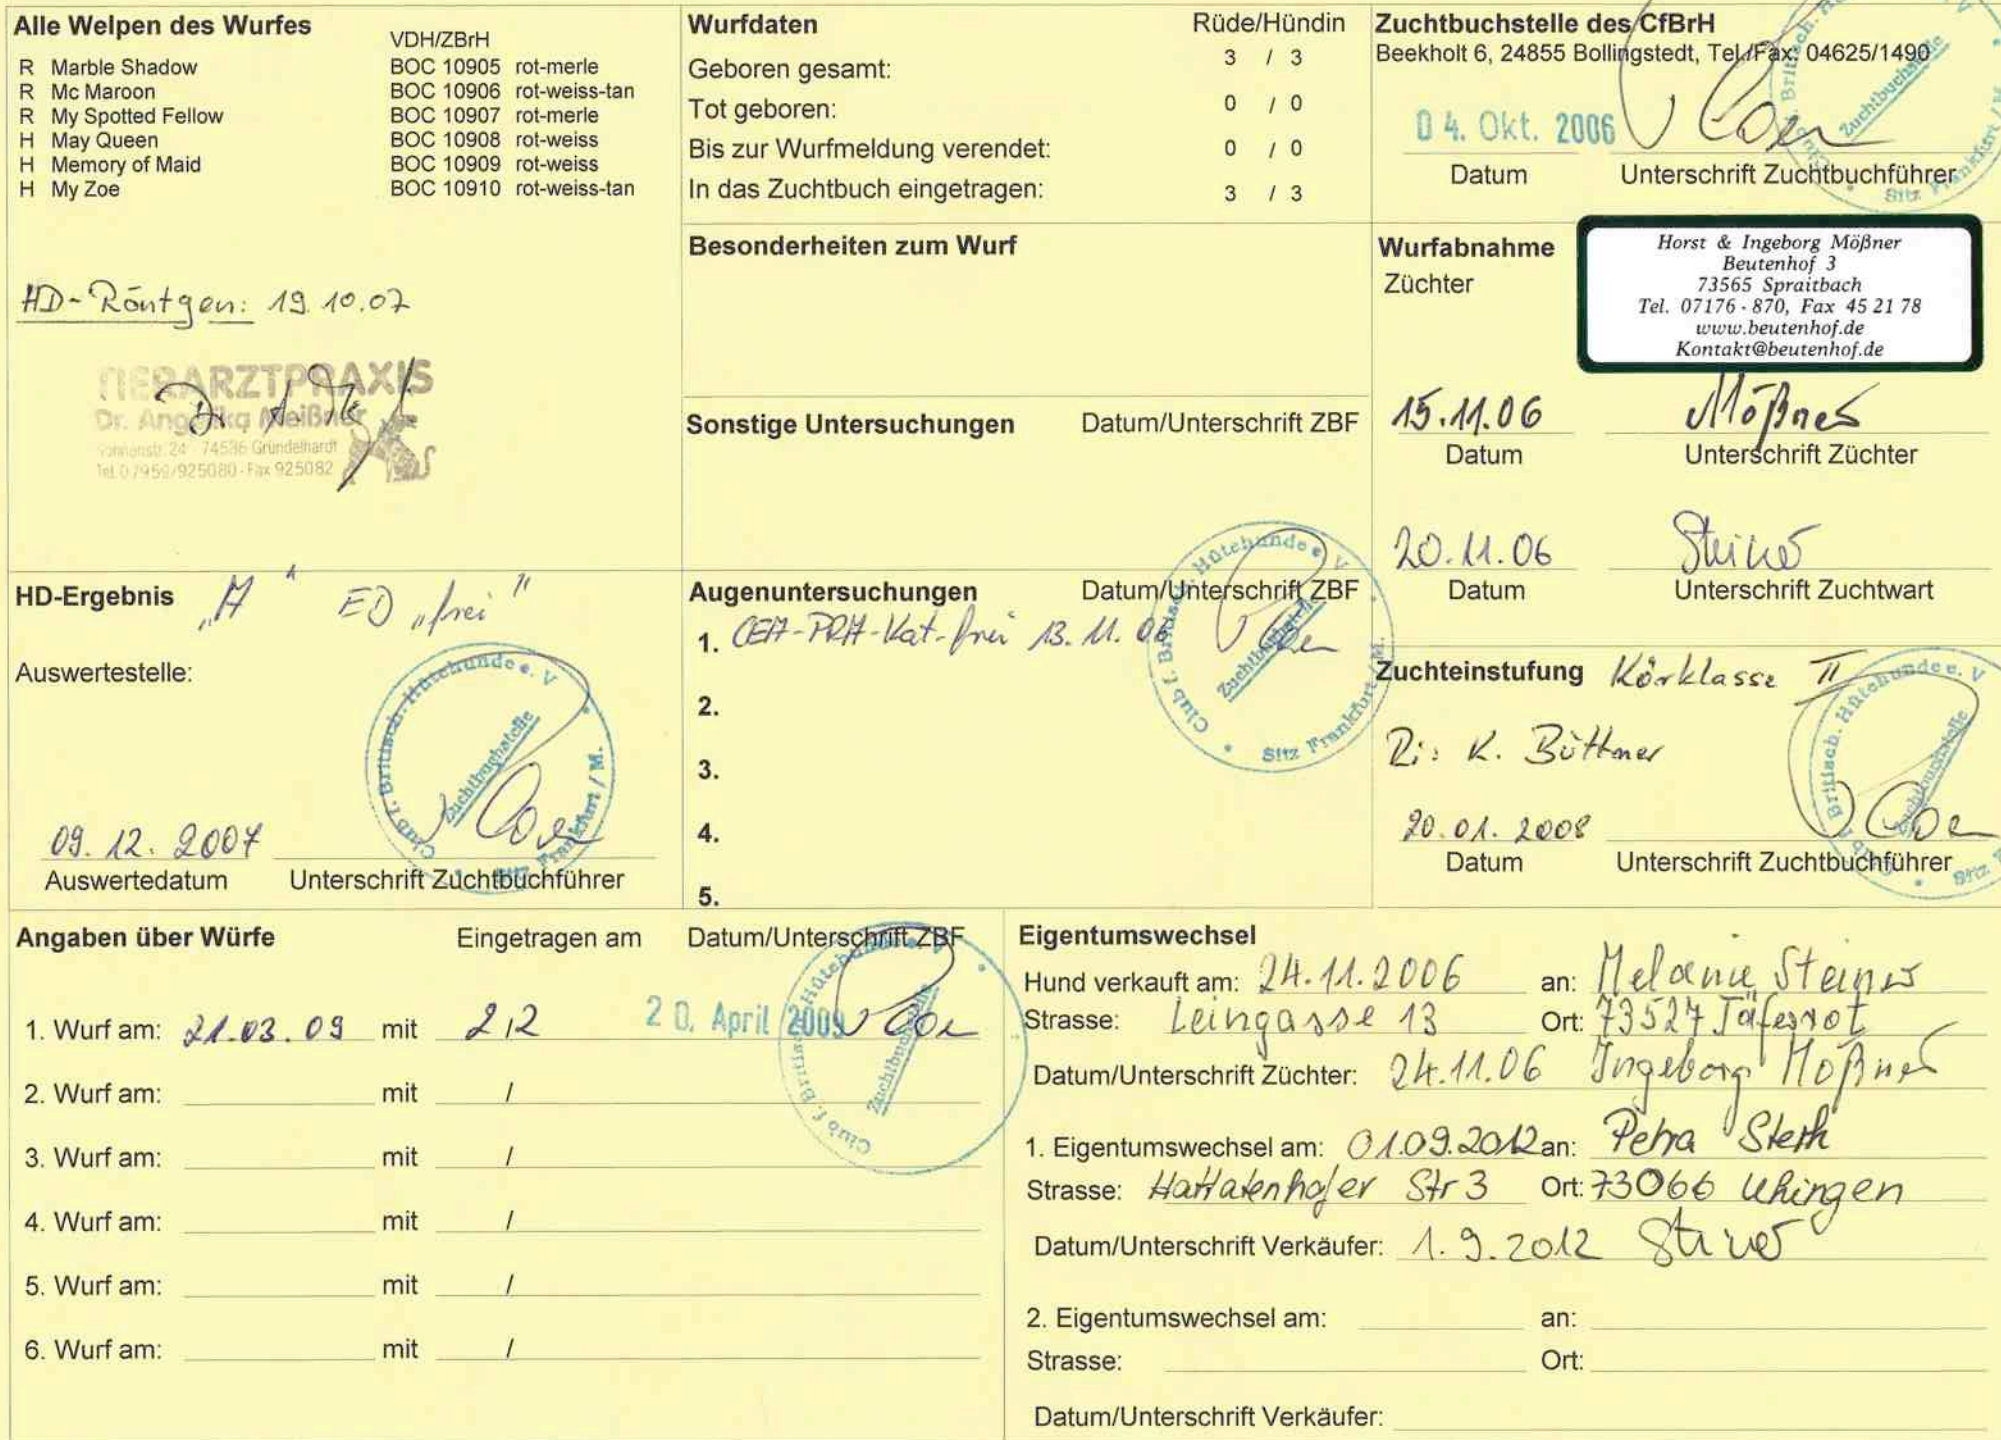 Alle Welpen des Wurfes
VDH/ZBrH
R Marble Shadow BOC 10905 rot-merle
R Mc Maroon BOC 10906 rot-weiss-tan
R My Spotted Fellow BOC 10907 rot-merle
H May Queen BOC 10908 rot-weiss
H Memory of Maid BOC 10909 rot-weiss
H My Zoe BOC 10910 rot-weiss-tan
HD-Röntgen: 19.10.07
TIERARZTPRAXIS
Dr. Angelika Meißner
24 74536 Gründelhardt
Tel. 07959/925080 - Fax 925082
Wurfdaten Rüde/Hündin
Geboren gesamt: 3 / 3
Tot geboren: 0 / 0
Bis zur Wurfmeldung verendet: 0 / 0
In das Zuchtbuch eingetragen: 3 / 3
Besonderheiten zum Wurf
Sonstige Untersuchungen Datum/Unterschrift ZBF
Zuchtbuchstelle des CfBrH
Beekholt 6, 24855 Bollingstedt, Tel./Fax: 04625/1490
04. Okt. 2006
Datum Unterschrift Zuchtbuchführer
Zuchtbuchstelle
Sitz Frankfurt / M.
Wurfabnahme
Züchter
Horst & Ingeborg Mößner
Beutenhof 3
73565 Spraitbach
Tel. 07176 - 870, Fax 45 21 78
www.beutenhof.de
Kontakt@beutenhof.de
15.11.06 Mößner
Datum Unterschrift Züchter
20.11.06 Steiner
Datum Unterschrift Zuchtwart
HD-Ergebnis „A“ ED „frei“
Auswertestelle:
Club f. Britisch. Hütehunde e. V
Zuchtbuchstelle
Sitz Frankfurt / M.
09. 12. 2007
Auswertedatum Unterschrift Zuchtbuchführer
Augenuntersuchungen Datum/Unterschrift ZBF
1. CEA-PRA-Kat-frei 13. 11. 06
2.
3.
4.
5.
Club f. Britisch. Hütehunde e. V
Zuchtbuchstelle
Sitz Frankfurt / M.
Zuchteinstufung Körklasse II
Ri: K. Büttner
20.01. 2008
Datum Unterschrift Zuchtbuchführer
Britisch. Hütehunde e. V
Zuchtbuchstelle
Angaben über Würfe Eingetragen am Datum/Unterschrift ZBF
1. Wurf am: 21.03.09 mit 2,2 20. April 2009
2. Wurf am: mit /
3. Wurf am: mit /
4. Wurf am: mit /
5. Wurf am: mit /
6. Wurf am: mit /
Club f. Britisch. Hütehunde e. V
Zuchtbuchstelle
Eigentumswechsel
Hund verkauft am: 24.11.2006 an: Melanie Steiner
Strasse: Leingasse 13 Ort: 73527 Täferrot
Datum/Unterschrift Züchter: 24.11.06 Ingeborg Mößner
1. Eigentumswechsel am: 01.09.2012 an: Petra
Strasse: Hattatenhofer Str 3 Ort: 73066 Uhingen
Datum/Unterschrift Verkäufer: 1.9.2012 Steiner
2. Eigentumswechsel am: an:
Strasse: Ort:
Datum/Unterschrift Verkäufer: